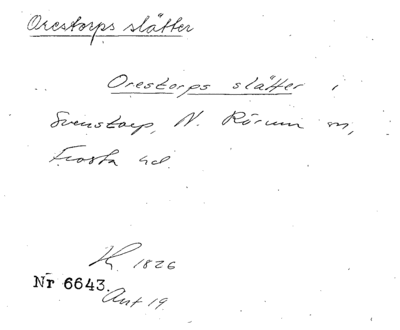 Orestorps slätter
Orestorps slätter i
Svenstorp, N. Rörum sn,
Frosta hd.
H. 1826
Nr 6643.
Avt 19